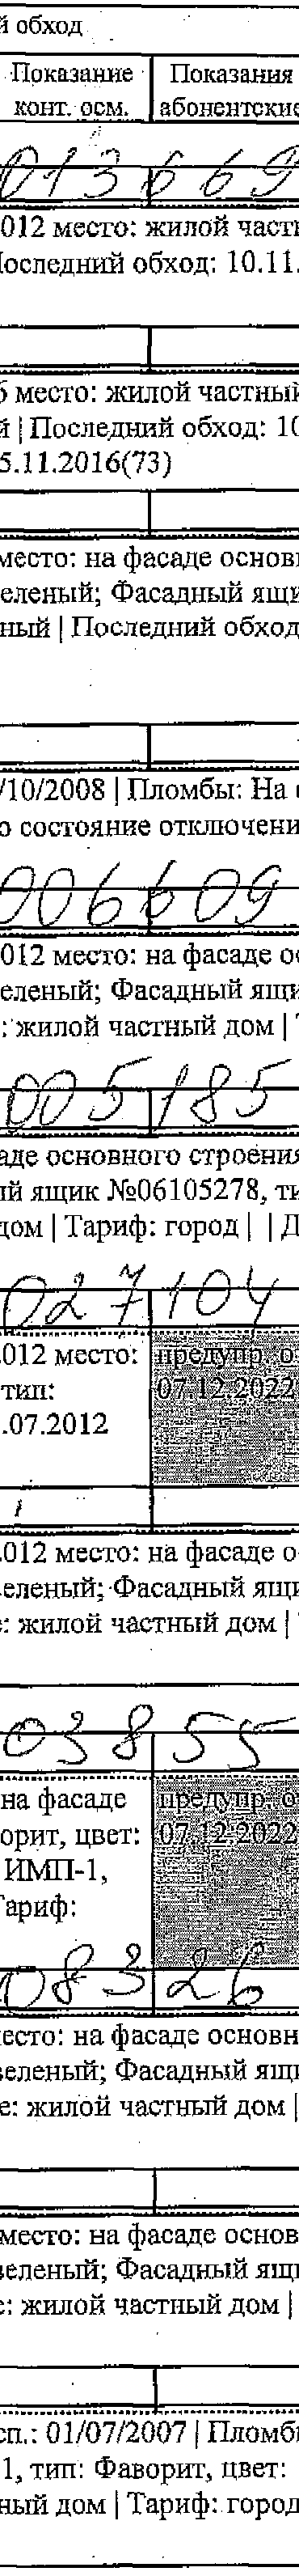 й обход
Показание Показания
конт. осм. абонентские
013669
012 место: жилой часть
Последний обход: 10.11.
6 место: жилой частный
й | Последний обход: 10
5.11.2016(73)
место: на фасаде основн
еленый; Фасадный ящи
ный | Последний обход
/10/2008 | Пломбы: На
о состояние отключени
006609
012 место: на фасаде о
еленый; Фасадный ящи
: жилой частный дом |
005185
аде основного строения
ый ящик №06105278, ти
дом | Тариф: город | | Д
027104
.012 место: предупр. о
тип: 07.12.2022
.07.2012
.012 место: на фасаде о
зеленый; Фасадный ящи
е: жилой частный дом |
03855
на фасаде предупр. о
орит, цвет: 07.12.2022
ИМП-1,
Тариф:
08326
место: на фасаде основн
зеленый; Фасадный ящи
е: жилой частный дом |
место: на фасаде основ
зеленый; Фасадный ящи
е: жилой частный дом |
сп.: 01/07/2007 | Пломбы
1, тип: Фаворит, цвет:
ный дом | Тариф: город